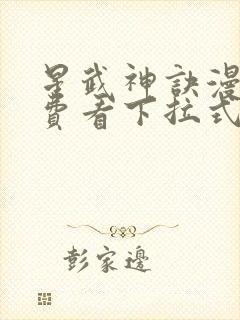 星武神訣漫
費看下拉式
彭家邊